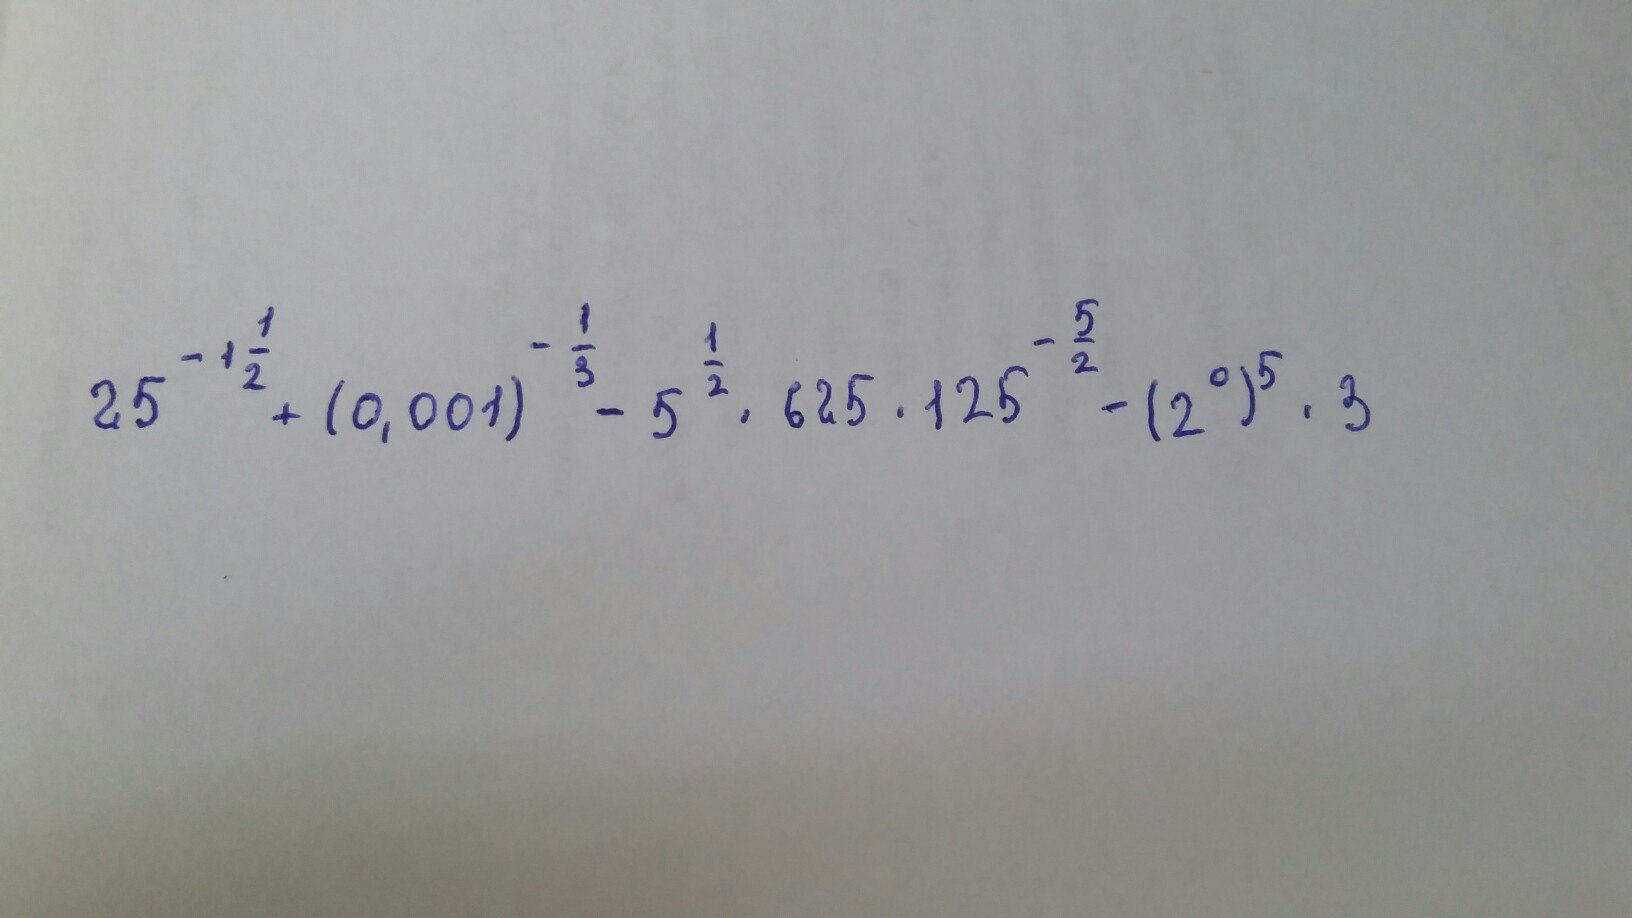 25^{-1\frac{1}{2}} + (0,001)^{-\frac{1}{3}} - 5^{\frac{1}{2}} \cdot 625 \cdot 125^{-\frac{5}{2}} - (2^0)^5 \cdot 3